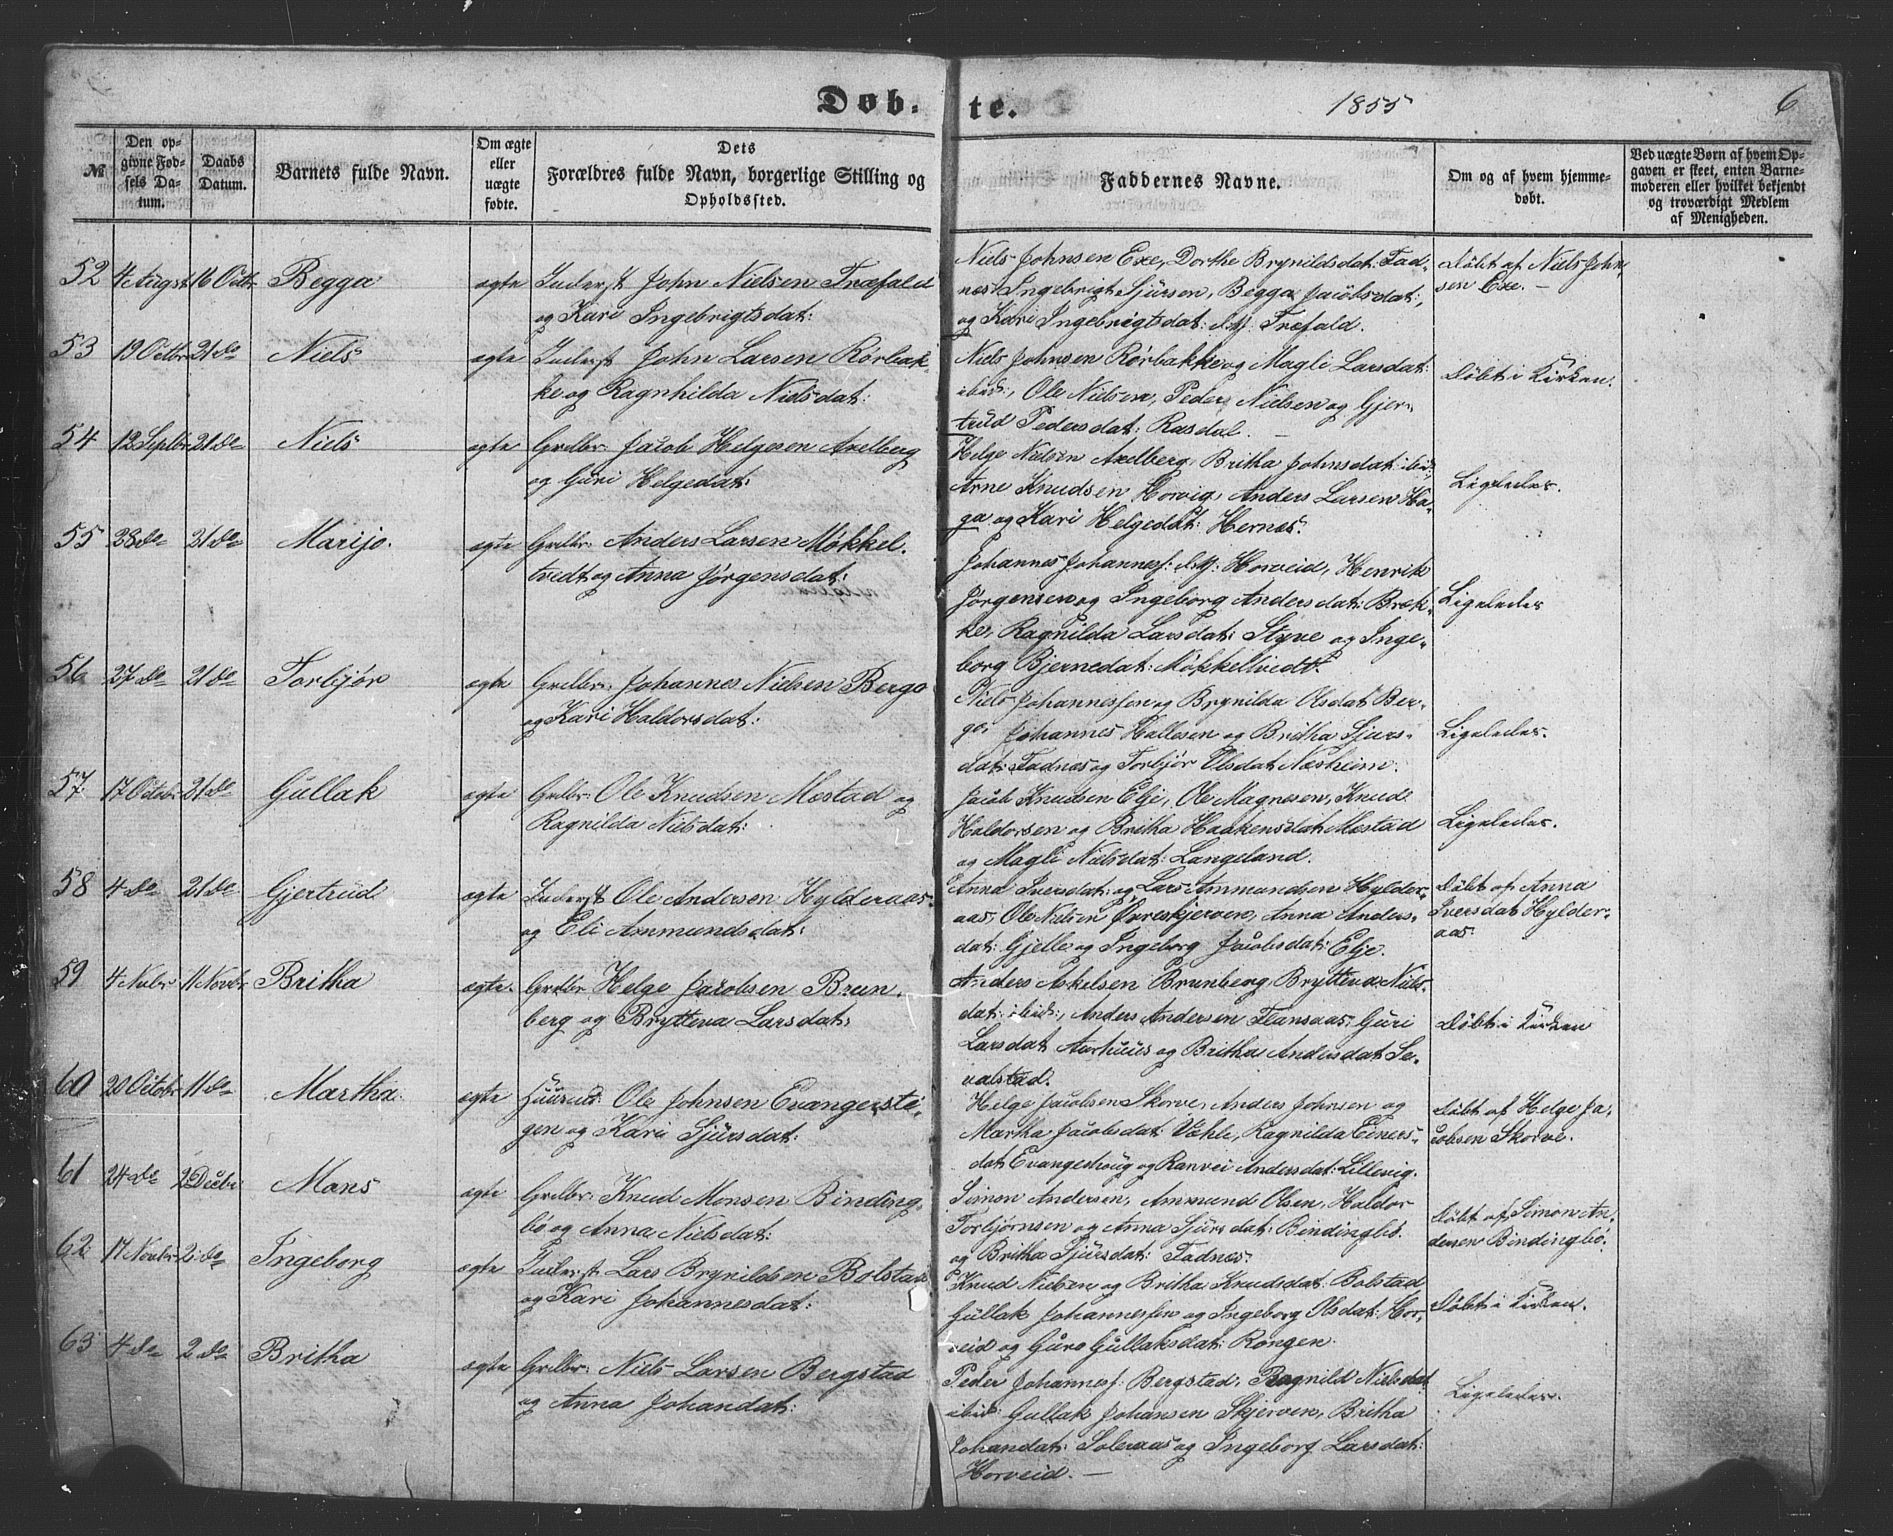 Døb-
te.
1855
6
№
Den op-
givne Fød-
sels Da-
tum.
Daabs
Datum.
Barnets fulde Navn.
Om ægte
eller
uægte
fødte.
Dets
Forældres fulde Navn, borgerlige Stilling og
Opholdssted.
Faddernes Navne.
Om og af hvem hjemme-
døbt.
Ved uægte Børn af hvem Op-
gaven er skeet, enten Barne-
moderen eller hvilket bekjendt
og troværdigt Medlem
af Menigheden.
52 4 August 16 Octbr Begga ægte Inderst John Nielsen Træfald
og Kari Ingebrigtsdat:
Niels Johnsen Exe, Dorthe Brynildsdat: Tad-
nes, Ingebrigt Sjursen, Begga Jacobsdat:,
og Kari Ingebrigtsdat: Træfald.
Døbt af Niels John,
sen Exe. –
53 19 Octbr 21 do Niels ægte Inderst John Larsen Rørbak-
ke og Ragnhilda Nielsdat:
Niels Johnsen Rørbakke og Magli Larsdat:
ibid:, Ole Nielsen, Peder Nielsen og Gjer-
trud Pedersdat: Rasdal. –
Døbt i Kirken.
54 12 Septbr 21 do Niels ægte Grdbr: Jacob Helgesen Axelberg
og Guri Helgedat:
Helge Nielsen Axelberg, Britha Johnsdat: ibid:,
Arne Knudsen Horvig, Anders Larsen Ha-
ga og Kari Helgedat: Hernes.
Ligeledes.
55 28 do 21 do Marijo. ægte Grdbr: Anders Larsen Møkkel-
tvedt og Anna Jørgensdat:
Johannes Johannesf: Horveid, Henrik
Jørgensen og Ingeborg Andersdat: Bræk-
ke, Ragnilda Larsdat: Styve og Inge-
borg Bjernedat: Møkkeltvedt.
Ligeledes
56 27 do 21 do Torbjør ægte Grdbr: Johannes Nielsen Bergo
og Kari Haldorsdat:
Niels Johannessen og Brynilda Olsdat Ber-
go, Johannes Hallesen og Britha Sjurs-
dat: Tadnes og Torbjør Olsdat Næsheim.
Ligeledes.
57 17 Octobr 21 do Gullak ægte Grdbr: Ole Knudsen Mestad og
Ragnilda Nielsdat:
Jacob Knudsen Elje, Ole Magnesen, Knud
Haldorsen og Britha Haakensdat: Mestad
og Magli Nielsdat: Langeland.
Ligeledes.
58 4 do 21 do Gjertrud ægte Inderst Ole Andersen Hylderaas
og Eli Ammundsdat:
Anna Iversdat: og Lars Ammundsen Hylder-
aas, Ole Nielsen Øvreskjerven, Anna Anders-
dat: Gjelle og Ingeborg Jacobsdat: Elje.
Døbt af Anna
Iversdat Hylder-
aas.
59 4 Nvbr 11 Novbr Britha ægte Grdbr Helge Jacobsen Brun-
berg og Brytteva Larsdat:
Anders Askelsen Brunberg, Brytteva Niels-
dat: ibid:, Anders Andersen Flansaas, Guri
Larsdat Aarhuus og Britha Andersdat Se-
valstad.
Døbt i Kirken
60 20 Octobr 11 do Martha ægte Huusmd: Ole Johnsen Evangerste-
gen og Kari Sjursdat:
Helge Jacobsen Skorve, Anders Johnsen og
Martha Jacobsdat: Væhle, Ragnilda Einers-
dat Evangeshoug og Ranvei Andersdat: Lillevig.
Døbt af Helge Ja-
cobsen Skorve.
61 24 do 2 Decbr Mons ægte Grdbr: Knud Monsen Binding-
bø og Anna Nielsdat:
Simon Andersen, Ammund Olsen, Haldor
Torbjørnsen og Anna Sjursdat: Bindingbø.
og Britha Sjursdat: Tadnes.
Døbt af Simon An-
dersen Bindingbø.
62 17 Novbr 2 do Ingeborg ægte Inderst Lars Brynildsen Bolstad
og Kari Johannesdat:
Knud Nielsen og Britha Knudsdat: Bolstad
Gullak Johannessen og Ingeborg Olsdat: Hor-
veid og Guro Gullaksdat: Rongen.
Døbt i Kirken.
63 4 do 2 do Britha ægte Grdbr: Niels Larsen Bergstad
og Anna Johandat:
Peder Johannesf: Bergstad, Ragnild Nielsdat
ibid: Gullak Johansen Skjerven, Britha
Johandat: Soleraas og Ingeborg Larsdat:
Horveid. –
Ligeledes.